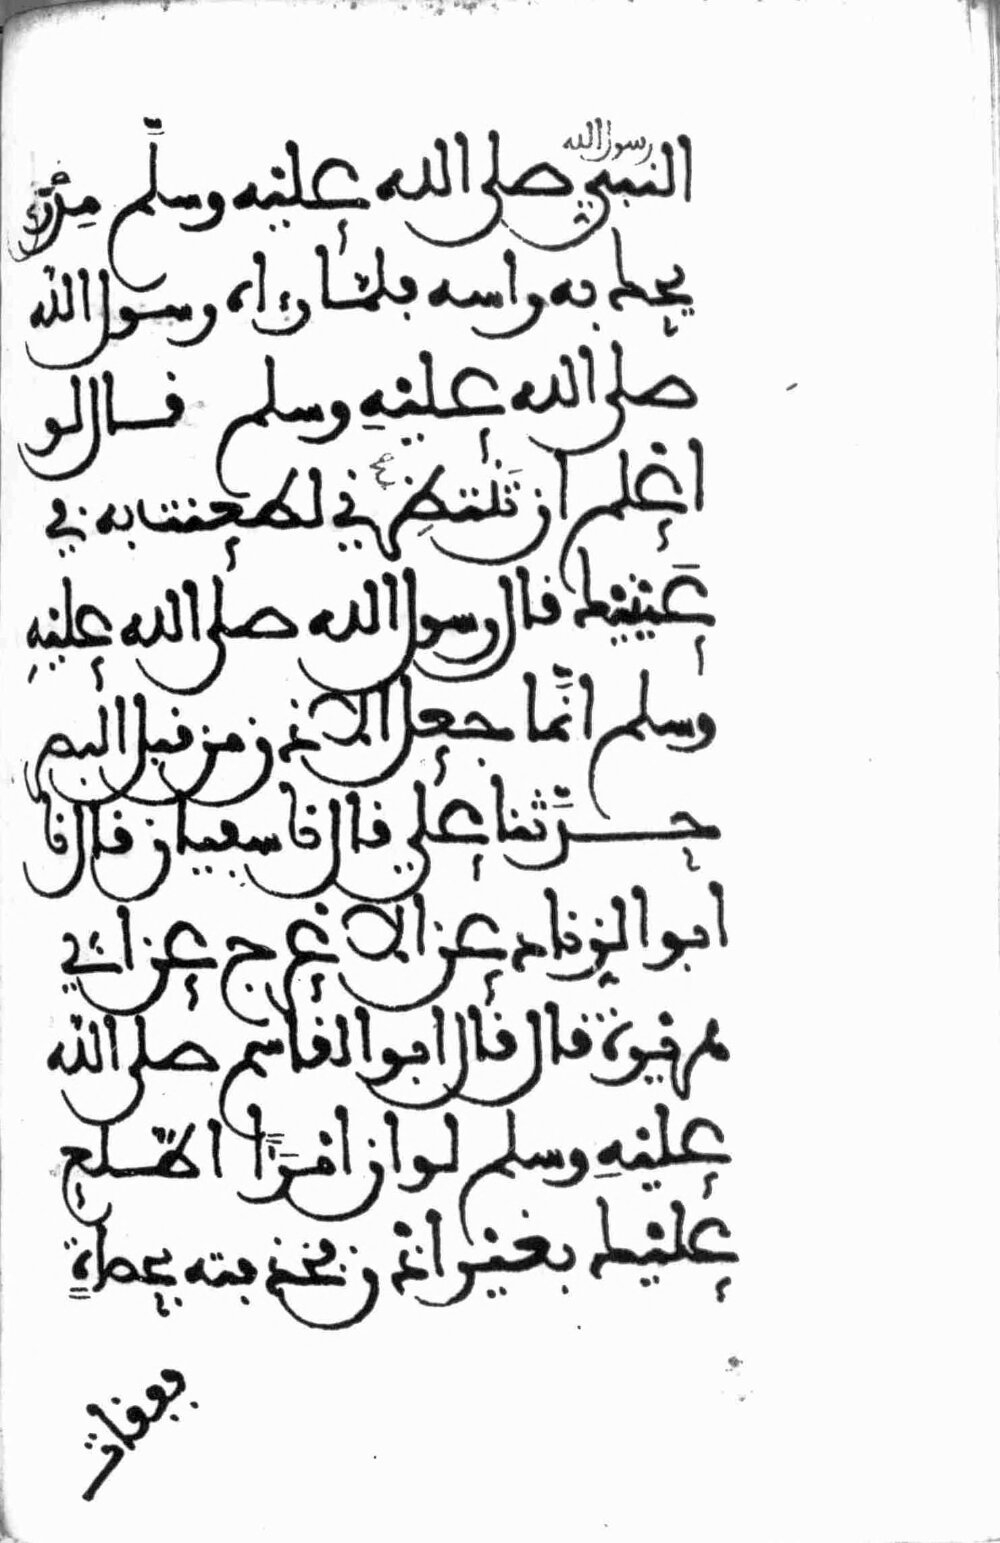 رسول الله
النبي صلى الله عليه وسلم مدرى
يحك به راسه فلما رءاه رسول الله
صلى الله عليه وسلم قال لو
اعلم ان تنتظرني لطعنت به في
عينيك قال رسول الله صلى الله عليه
وسلم انما جعل الاذن من قبل البصر
حدثنا علي قال نا سفيان قال نا
ابو الزناد عن الاعرج عن ابي
هريرة قال قال ابو القاسم صلى الله
عليه وسلم لو ان امرءا اطلع
عليك بغير اذن فخذفته بحصاة
ففقات